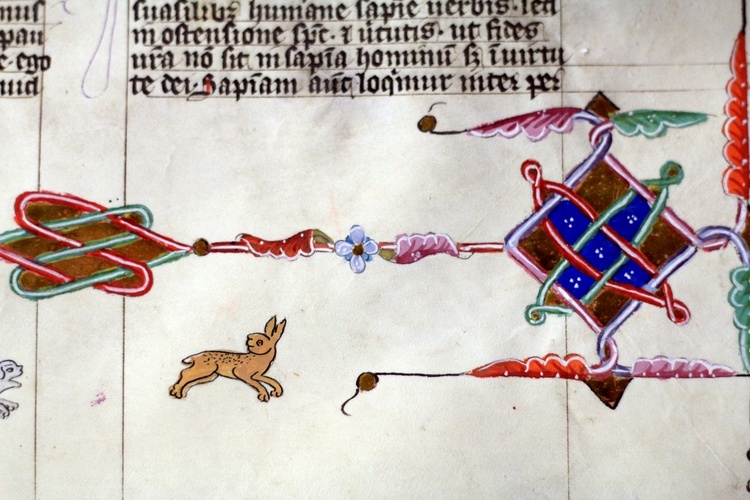 mus
pau
e. ego
uid
suasilib; humane sapīe uerbis. sed
in ostensione sp̄c. ⁊ ūtutis. ut fides
ur̄a nō sit in sapīa hominū sꝫ ī uirtu
te dei. Sapīam aut̄ loqimur inter per